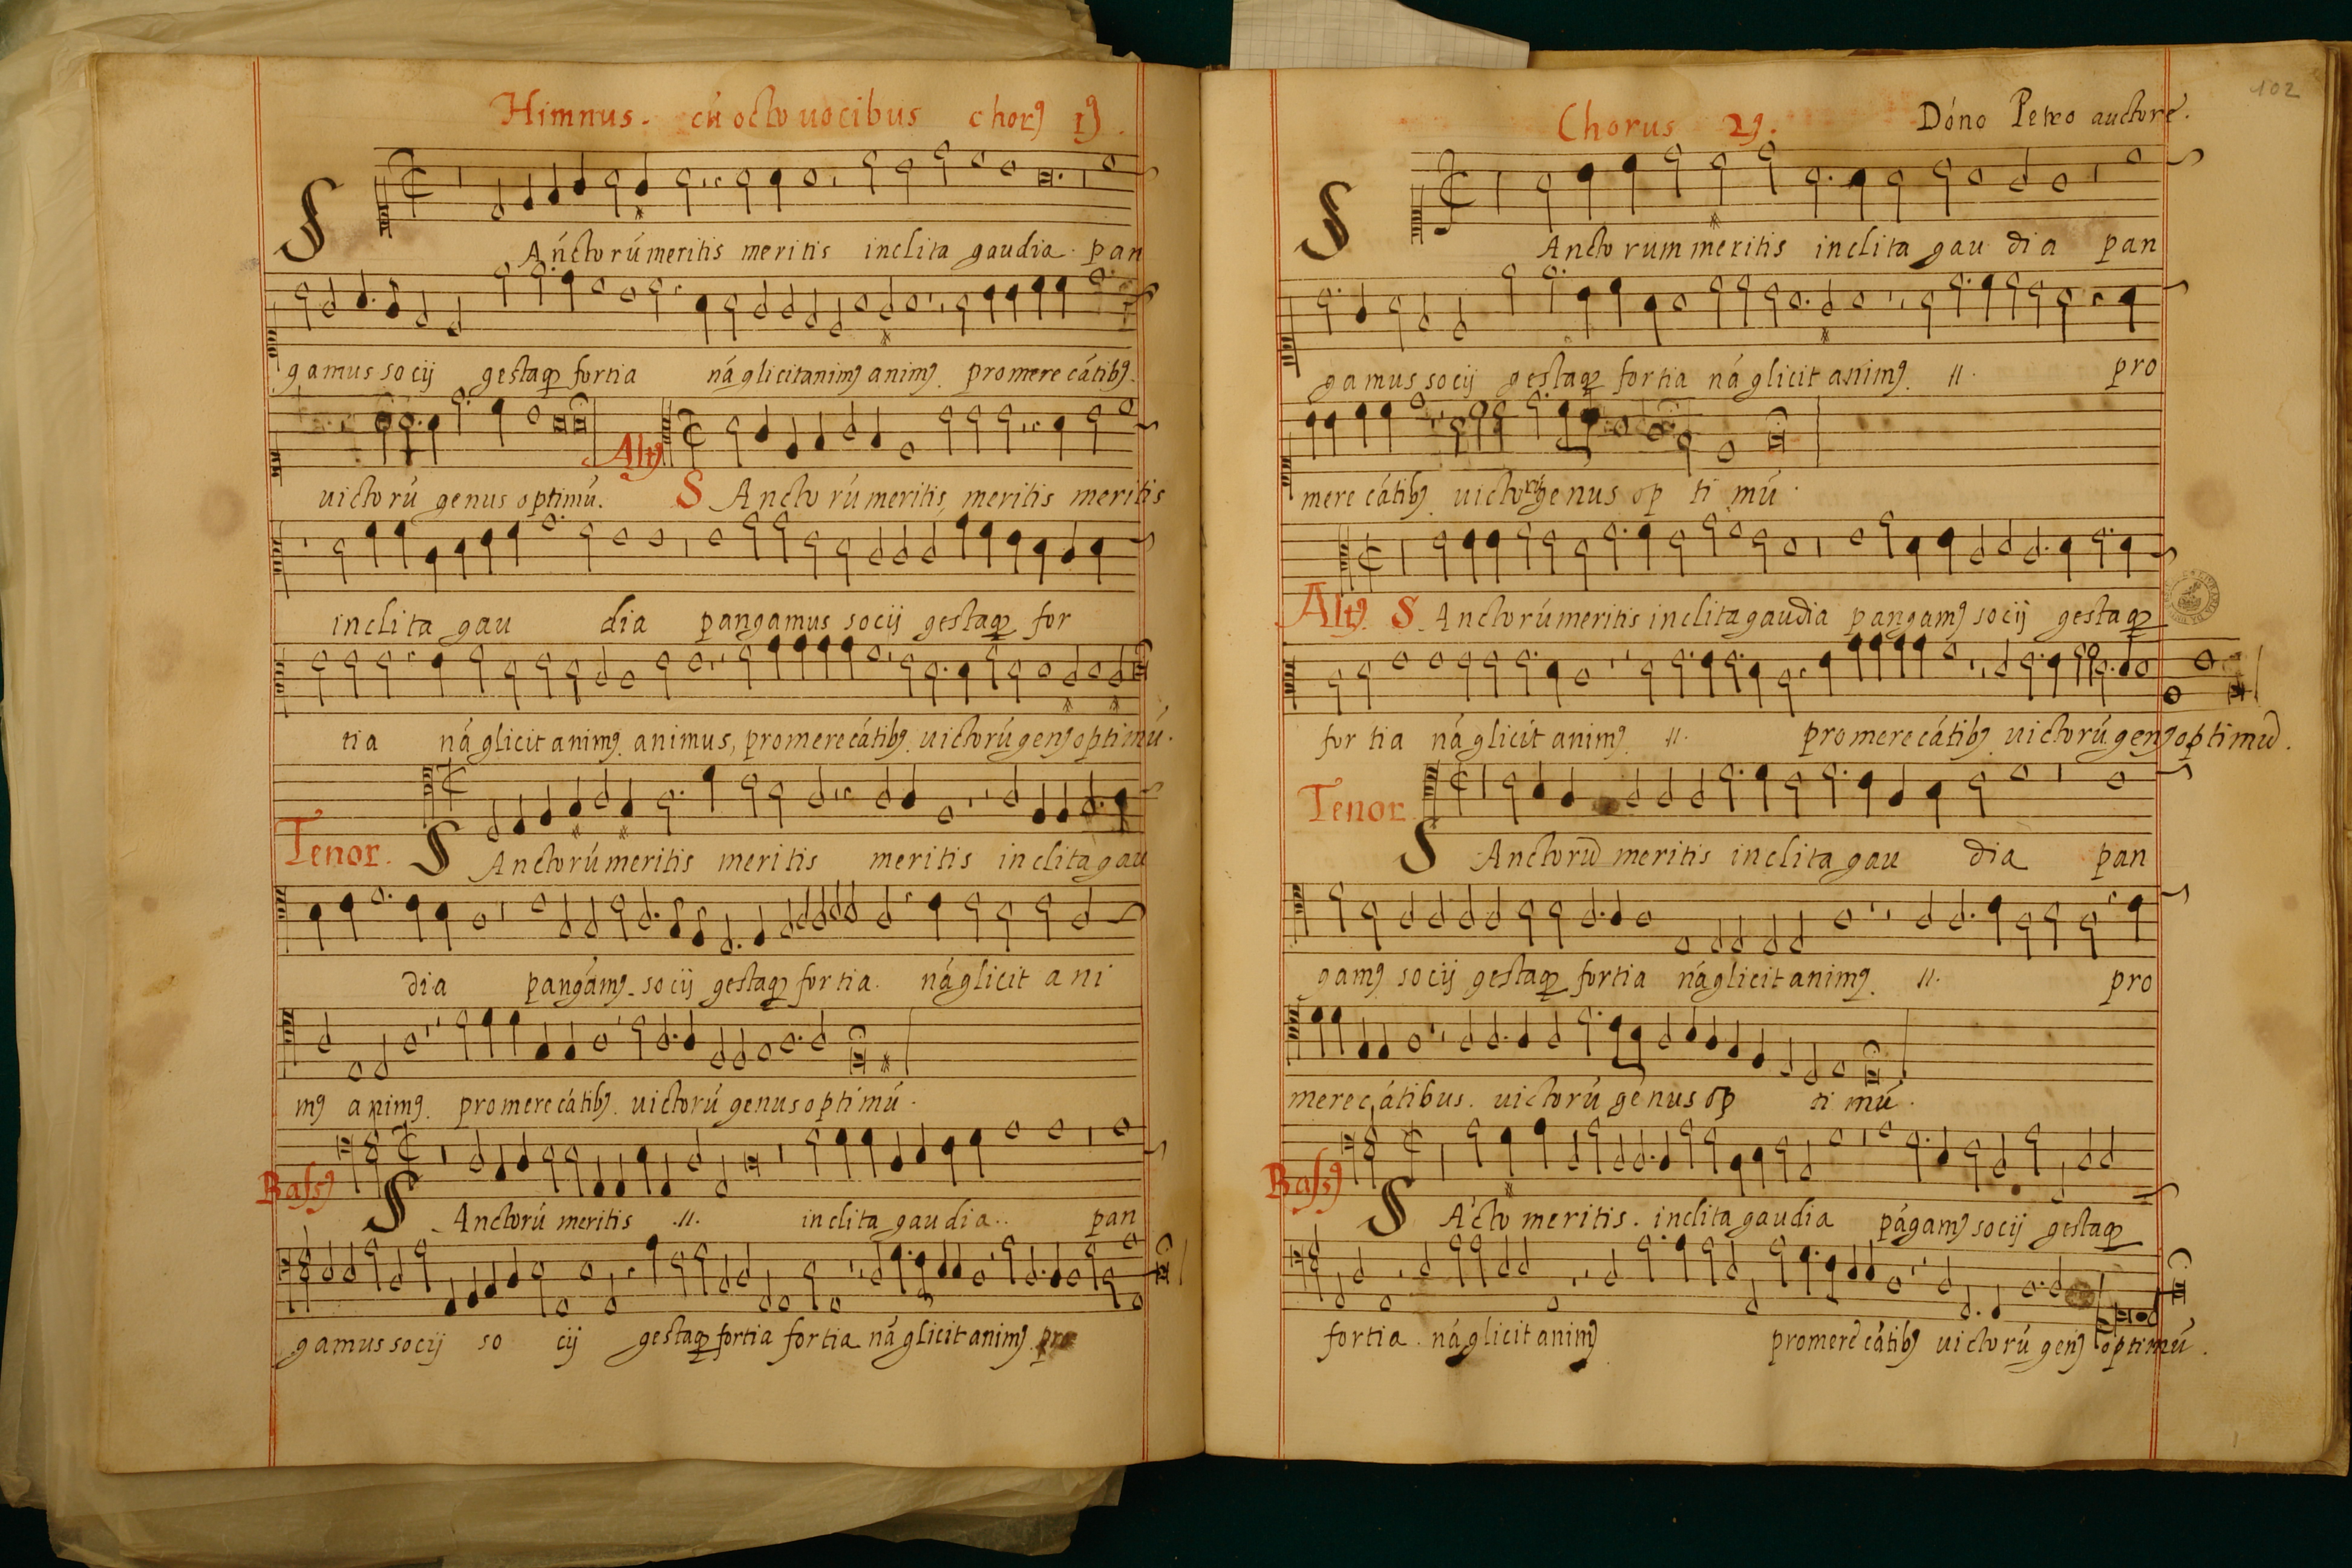 Himnus. cũ octo uocibus chorꝰ 1ꝰ.
S Anctorú meritis meritis inclita gaudia pan
gamus socij gestaqȝ fortia ná glicit animꝰ animꝰ. promere cátibꝰ.
uictorú genus optimú. Altꝰ S Anctorú meritis, meritis meritis
inclita gau dia pangamus socij gestaqȝ for
tia ná glicit animꝰ. animus, promere cátibꝰ. uictorú genꝰ optimú.
Tenor. S Anctorú meritis meritis meritis inclita gau
dia pangámꝰ socij gestaqȝ fortia. ná glicit ani
mꝰ animꝰ. promere cátibꝰ. uictorú genus optimú.
Bassꝰ S Anctorú meritis .ıı. inclita gaudia.. pan
gamus socij so cij gestaqȝ fortia fortia ná glicit animꝰ. pro
102
Chorus 2ꝰ. Dóno Petro auctore.
S Anctorum meritis inclita gau dia pan
gamus socij gestaqȝ fortia ná glicit animꝰ. ıı. pro
mere cátibꝰ. uictorú genus op ti mú.
Altꝰ. S Anctorú meritis inclita gaudia pangamꝰ socij gestaqȝ
for tia ná glicit animꝰ. ıı. promere cátibꝰ. uictorú genꝰ optimũ.
Tenor S Anctorũ meritis inclita gau dia pan
gamꝰ socij gestaqȝ fortia ná glicit animꝰ. ıı. pro
mere cátibus. uictorú genus op ti mú.
Bassꝰ S Ácto meritis. inclita gaudia págamꝰ socij gestaqȝ
fortia. ná glicit animꝰ promere cátibꝰ uictorú genꝰ optimú.